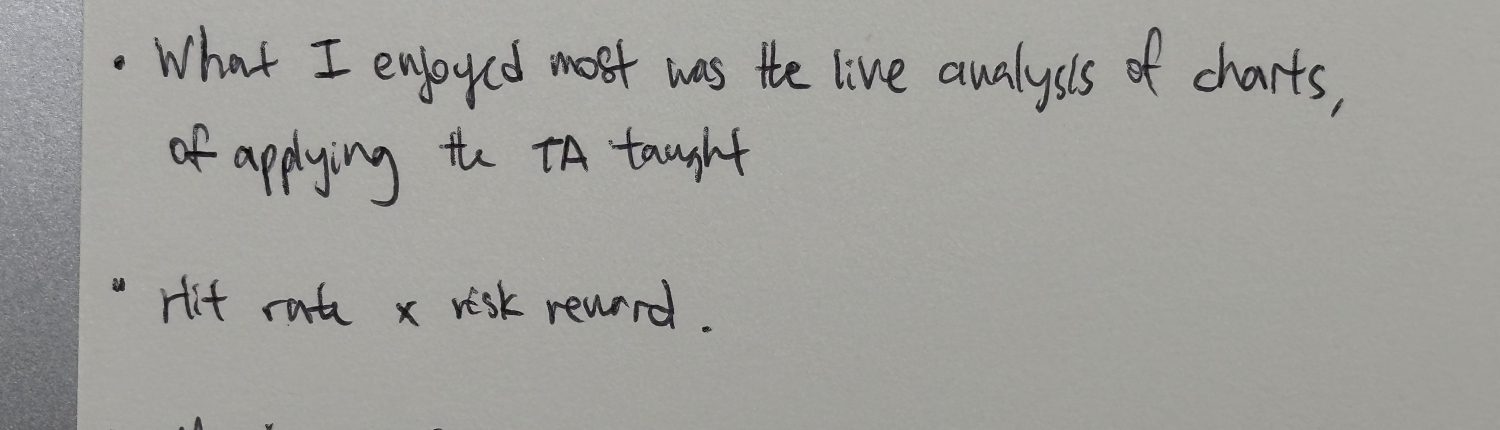 • What I enjoyed most was the live analysis of charts,
of applying the TA taught
" Hit rate x risk reward.